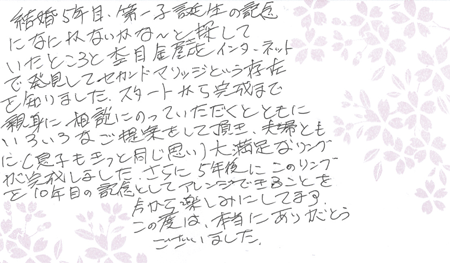 結婚5年目、第一子誕生の記念
になにかないかな〜と探して
いたところ木目金屋さんをインターネット
で発見してセカンドマリッジという存在
を知りました。スタートから完成まで
親身に相談にのっていただくとともに
いろいろなご提案をして頂き、夫婦とも
に(息子もきっと同じ思い)大満足なリング
が完成しました。さらに5年後にこのリング
を10年目の記念としてアレンジできることを
今から楽しみにしてます。
この度は、本当にありがとう
ございました。